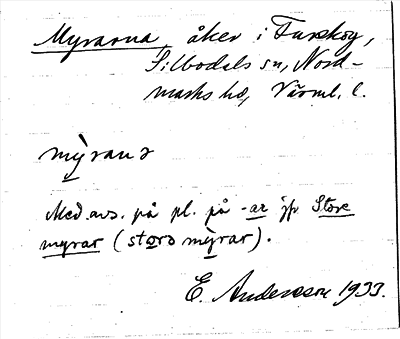 Myrarna, åker i Turskog,
Silbodals sn, Nord-
marks hd, Värml. l.
mỳranɔ
Med avs. på pl. på -ar jfr Store
myrar (storɔ mỳrar).
E. Andersson 1933.